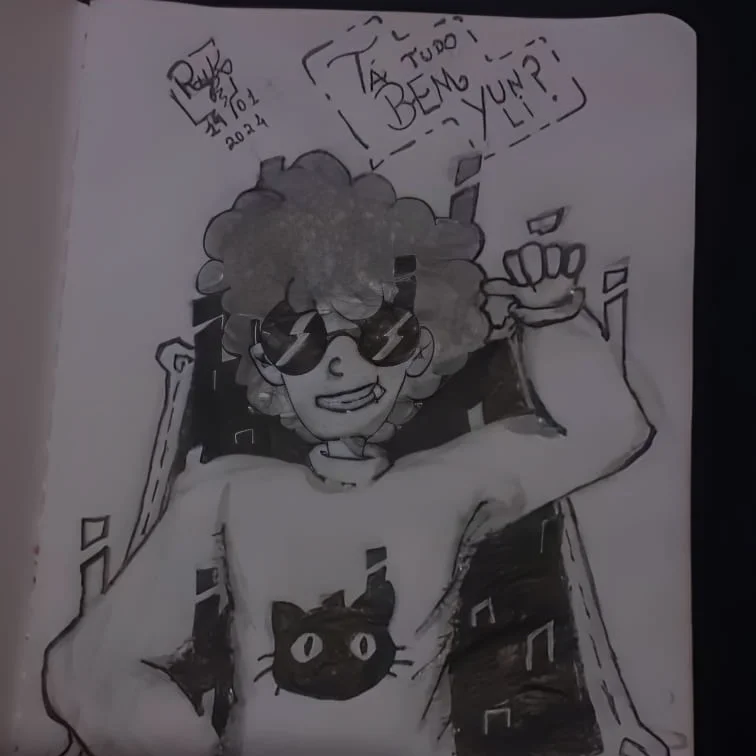 19/01
2024
TÁ TUDO
BEM YUN
LI?